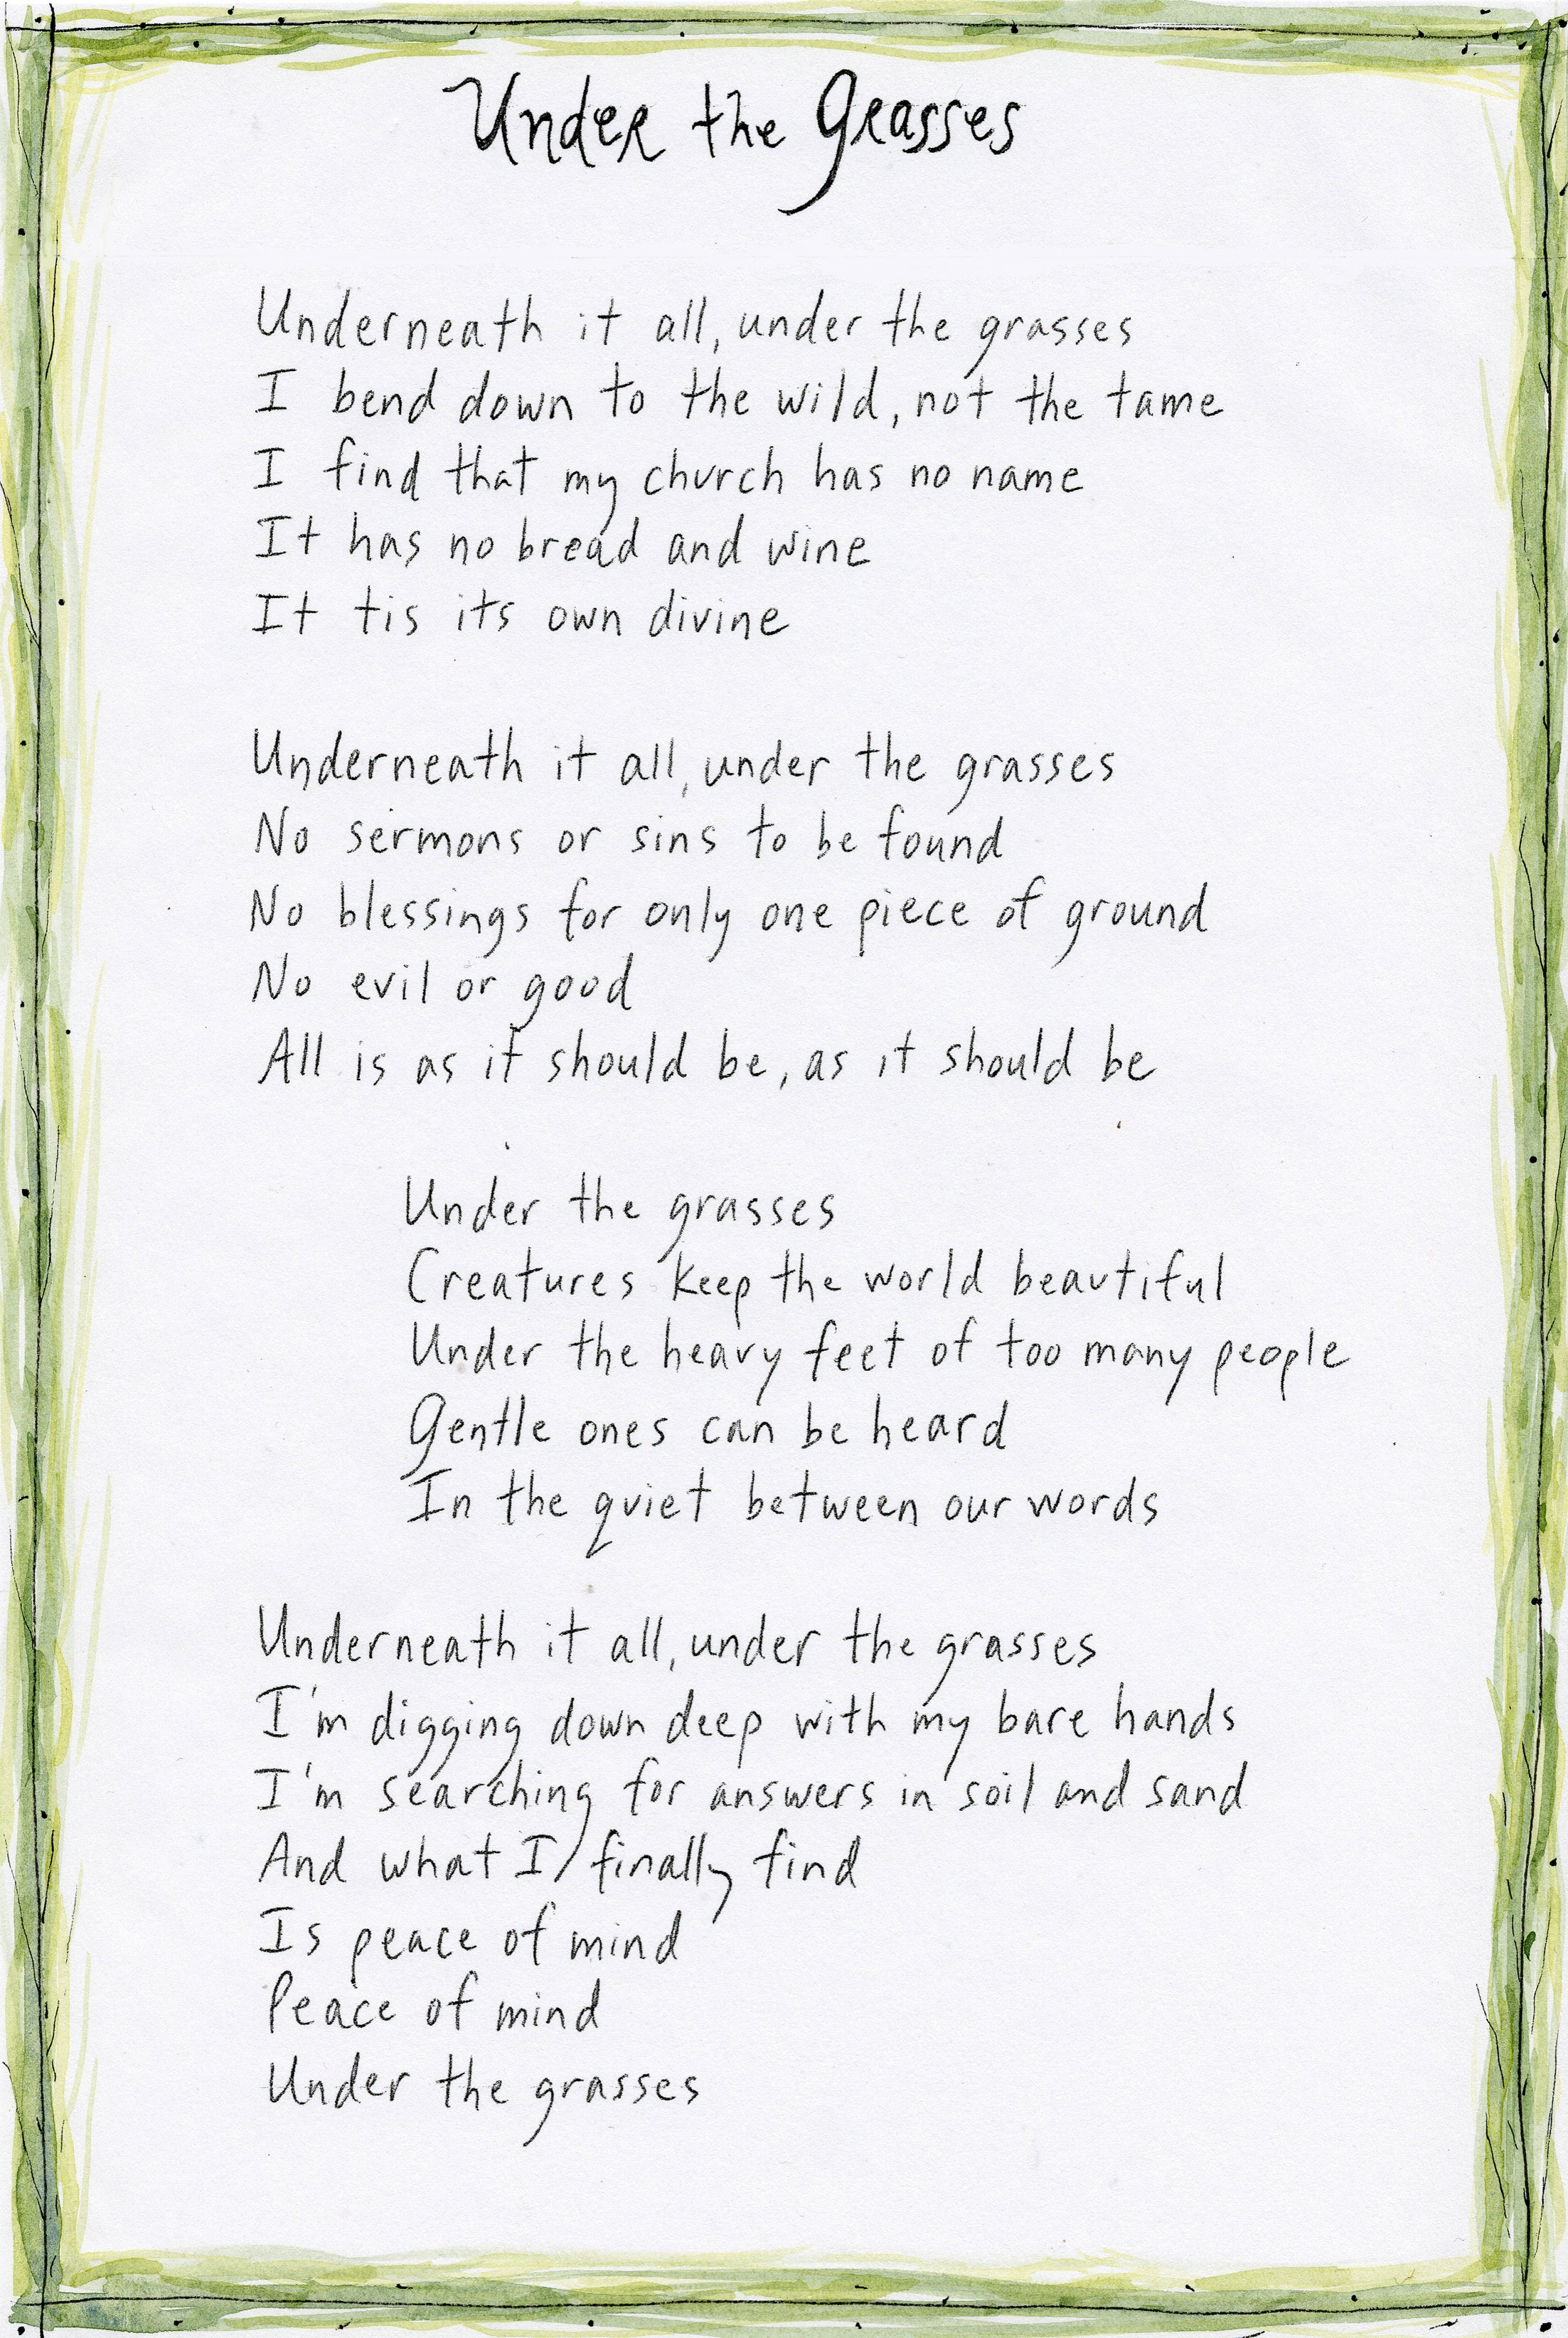 Under the Grasses
Underneath it all, under the grasses
I bend down to the wild, not the tame
I find that my church has no name
It has no bread and wine
It tis its own divine
Underneath it all, under the grasses
No sermons or sins to be found
No blessings for only one piece of ground
No evil or good
All is as it should be, as it should be
Under the grasses
Creatures keep the world beautiful
Under the heavy feet of too many people
Gentle ones can be heard
In the quiet between our words
Underneath it all, under the grasses
I'm digging down deep with my bare hands
I'm searching for answers in soil and sand
And what I finally find
Is peace of mind
Peace of mind
Under the grasses